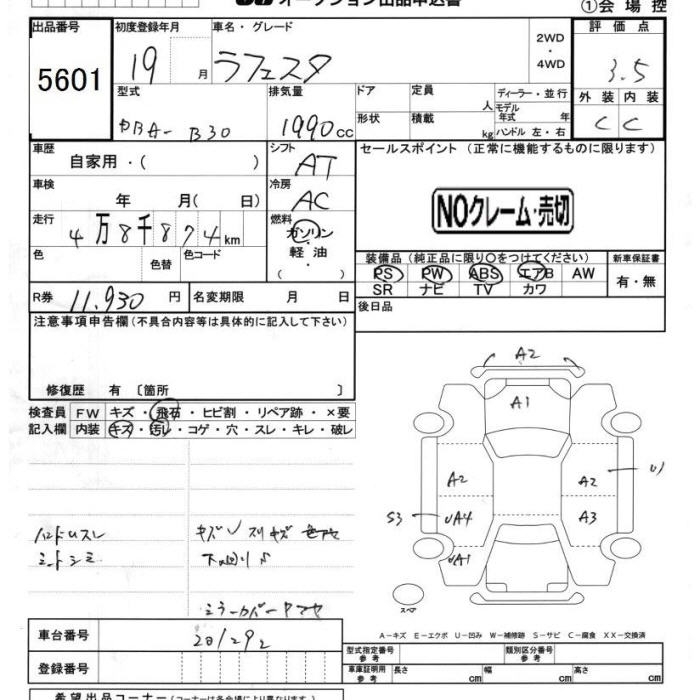 オークション出品申込書
①会場控
出品番号
5601
初度登録年月
19 月
車名・グレード
ラフェスタ
2WD
・
4WD
評価点
3.5
外装 内装
C C
型式
DBA- B30
排気量
1990 cc
ドア
形状
定員
人
積載
kg
ディーラー・並行
モデル
年式 年
ハンドル 左・右
車歴
自家用・( )
シフト
AT
セールスポイント(正常に機能するものに限ります)
NOクレーム・売切
車検
年 月( 日)
冷房
AC
走行
4万8千874km
燃料
ガソリン
軽油
・
色
色替
色コード
装備品(純正品に限り○をつけてください)
PS PW ABS エアB AW
SR ナビ TV カワ
新車保証書
有・無
R券 11,930 円
名変期限 月 日
後日品
注意事項申告欄(不具合内容等は具体的に記入して下さい)
修復歴 有〔箇所 〕
検査員
記入欄
FW キズ・飛石・ヒビ割・リペア跡・×要
内装 キズ・汚レ・コゲ・穴・スレ・キレ・破レ
ハンドルスレ
シートシミ
キズ
スリキズ
下回りS
ミラーカバー
A2
A1
A2
A2
U1
S3
UA4
A3
UA1
スペア
A-キズ E-エクボ U-凹み W-補修跡 S-サビ C-腐食 XX-交換済
車台番号
201292
登録番号
型式指定番号
参考
類別区分番号
参考
車庫証明用
参考
長さ cm
幅 cm
高さ cm
希望出品コーナー(コーナーは各会場により異なります)